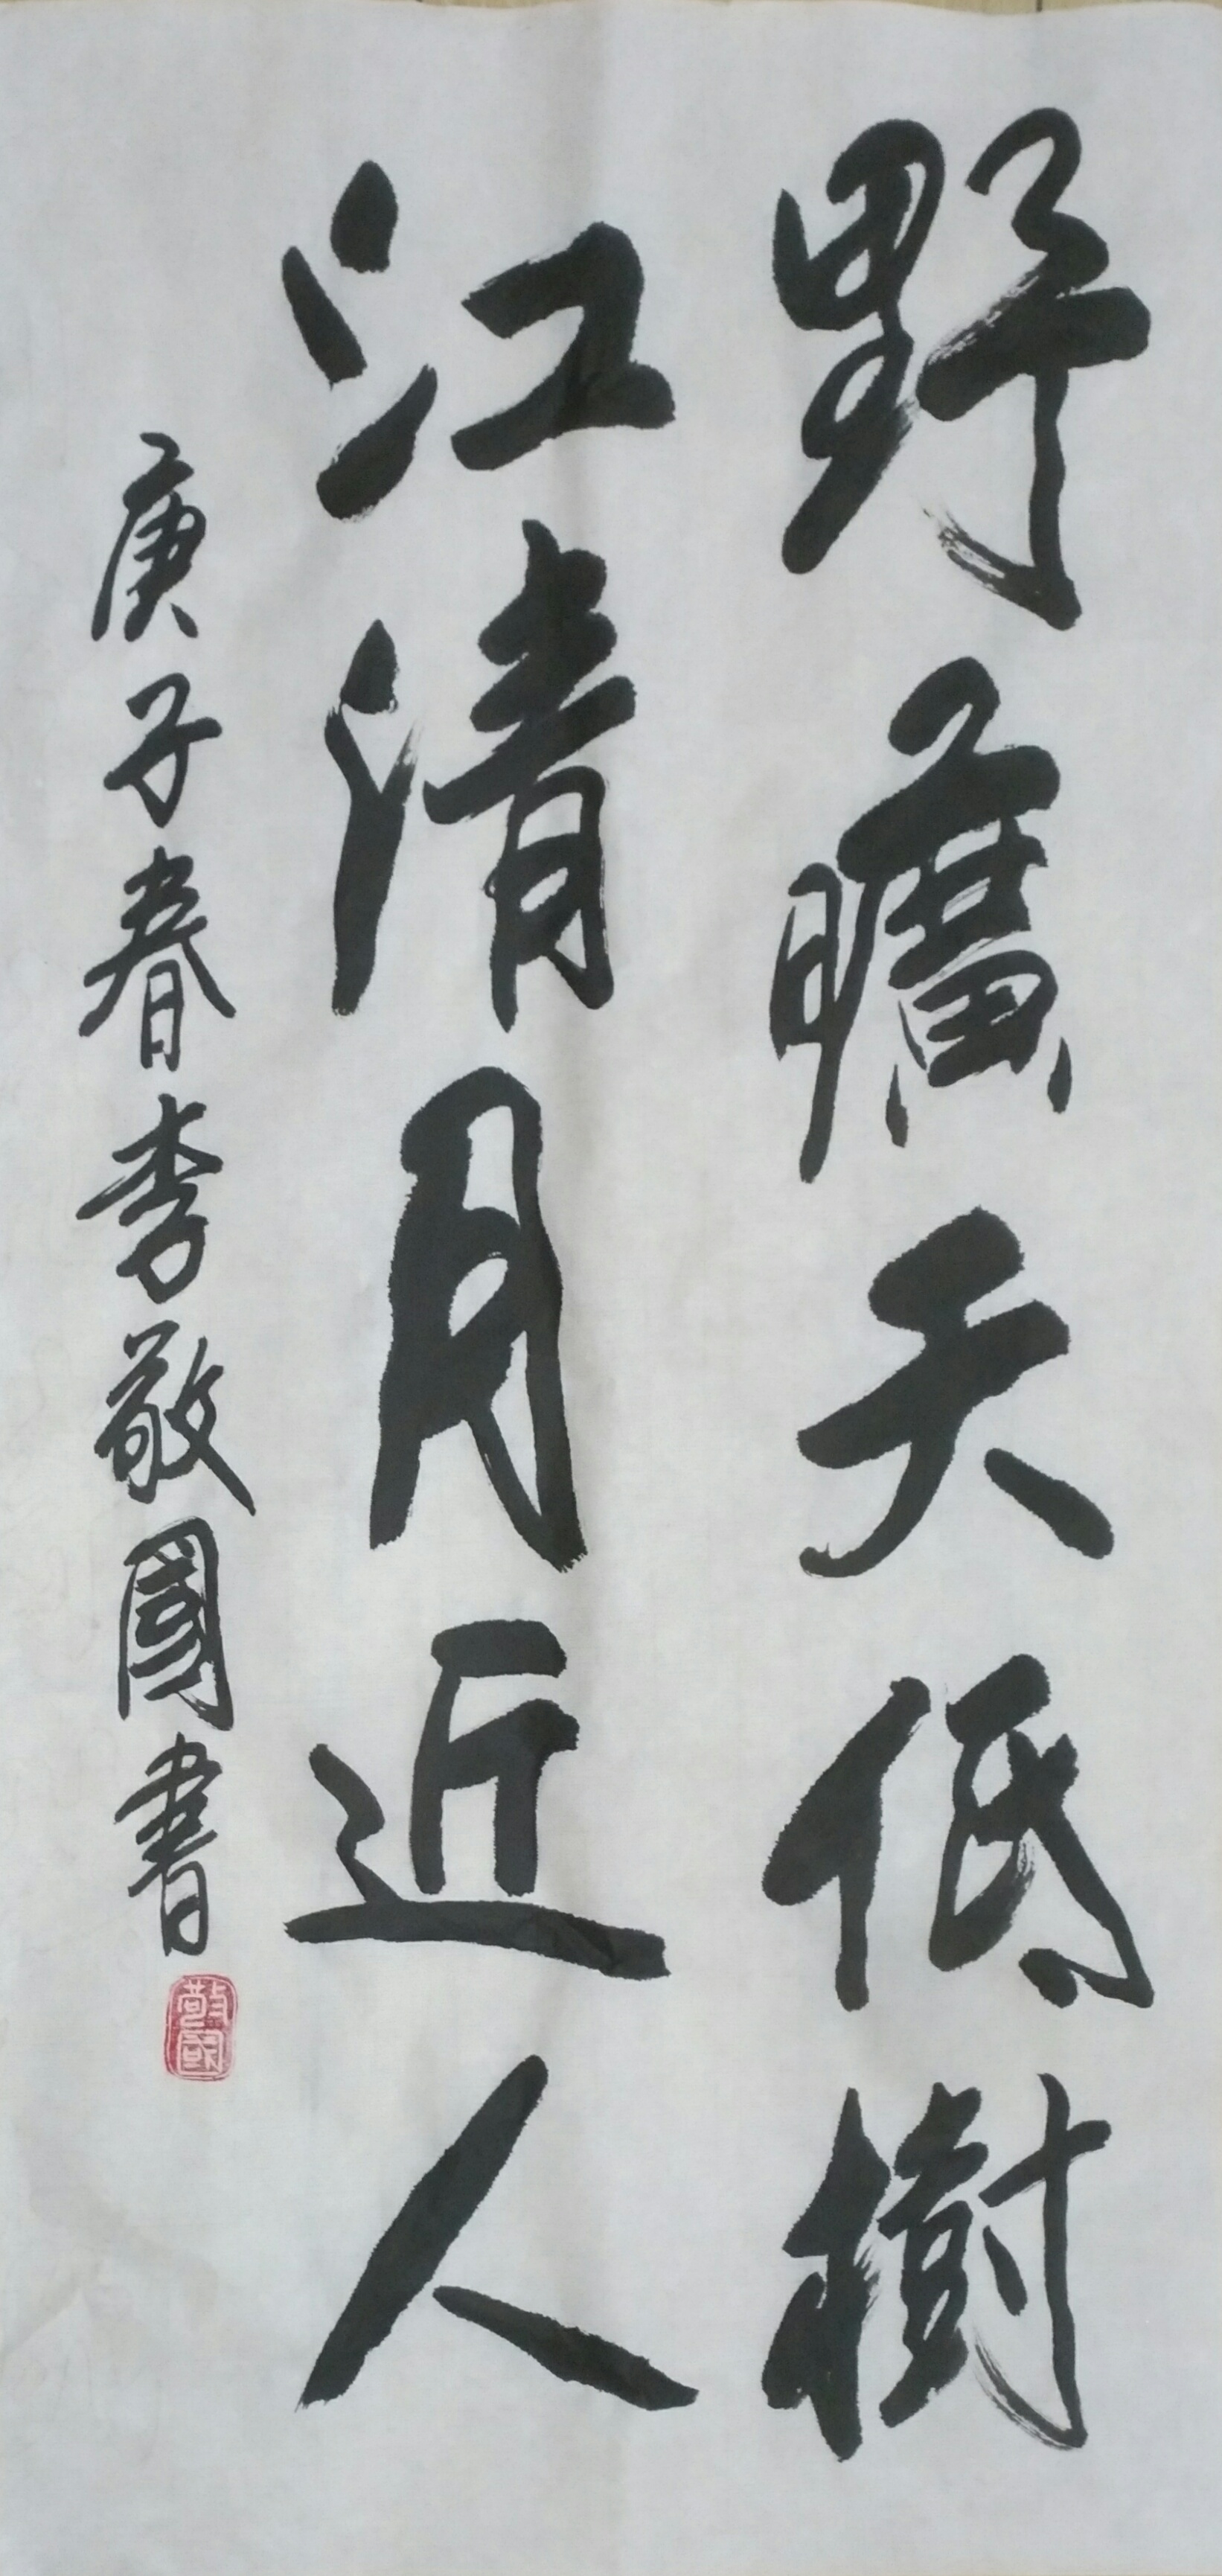 野曠天低樹
江清月近人
庚子春李敬國書
敬國